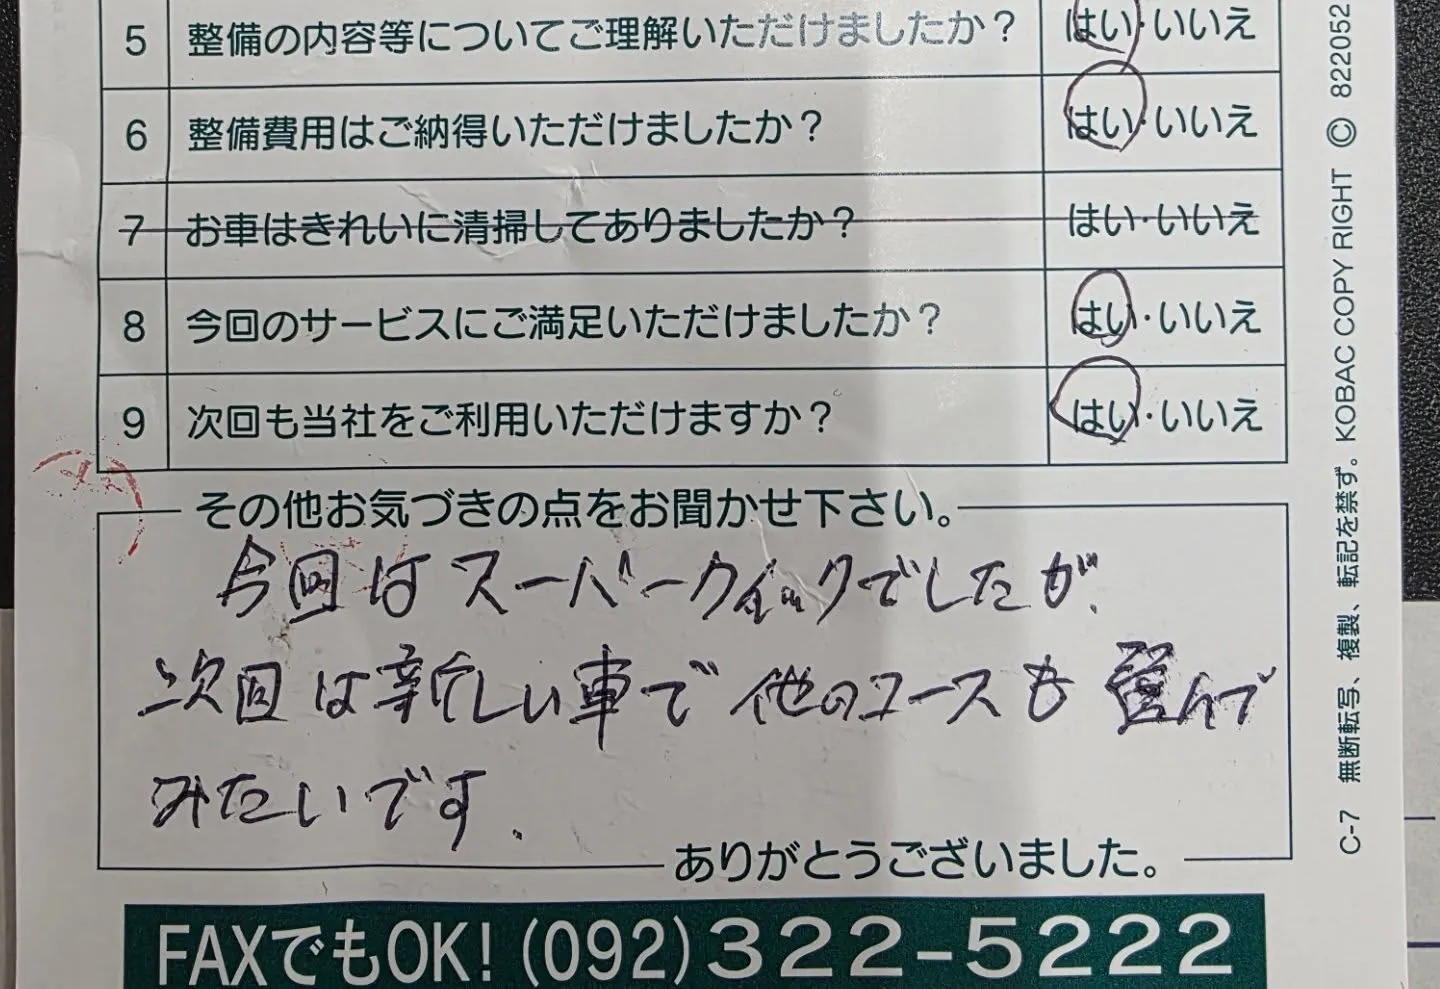 5 整備の内容等についてご理解いただけましたか？ はい・いいえ
6 整備費用はご納得いただけましたか？ はい・いいえ
7 お車はきれいに清掃してありましたか？ はい・いいえ
8 今回のサービスにご満足いただけましたか？ はい・いいえ
9 次回も当社をご利用いただけますか？ はい・いいえ
その他お気づきの点をお聞かせ下さい。
今回はスーパークイックでしたが、
次回は新しい車で他のコースも選んで
みたいです.
ありがとうございました。
FAXでもOK! (092)322-5222
C-7 無断転写、複製、転記を禁ず。KOBAC COPY RIGHT © 822052